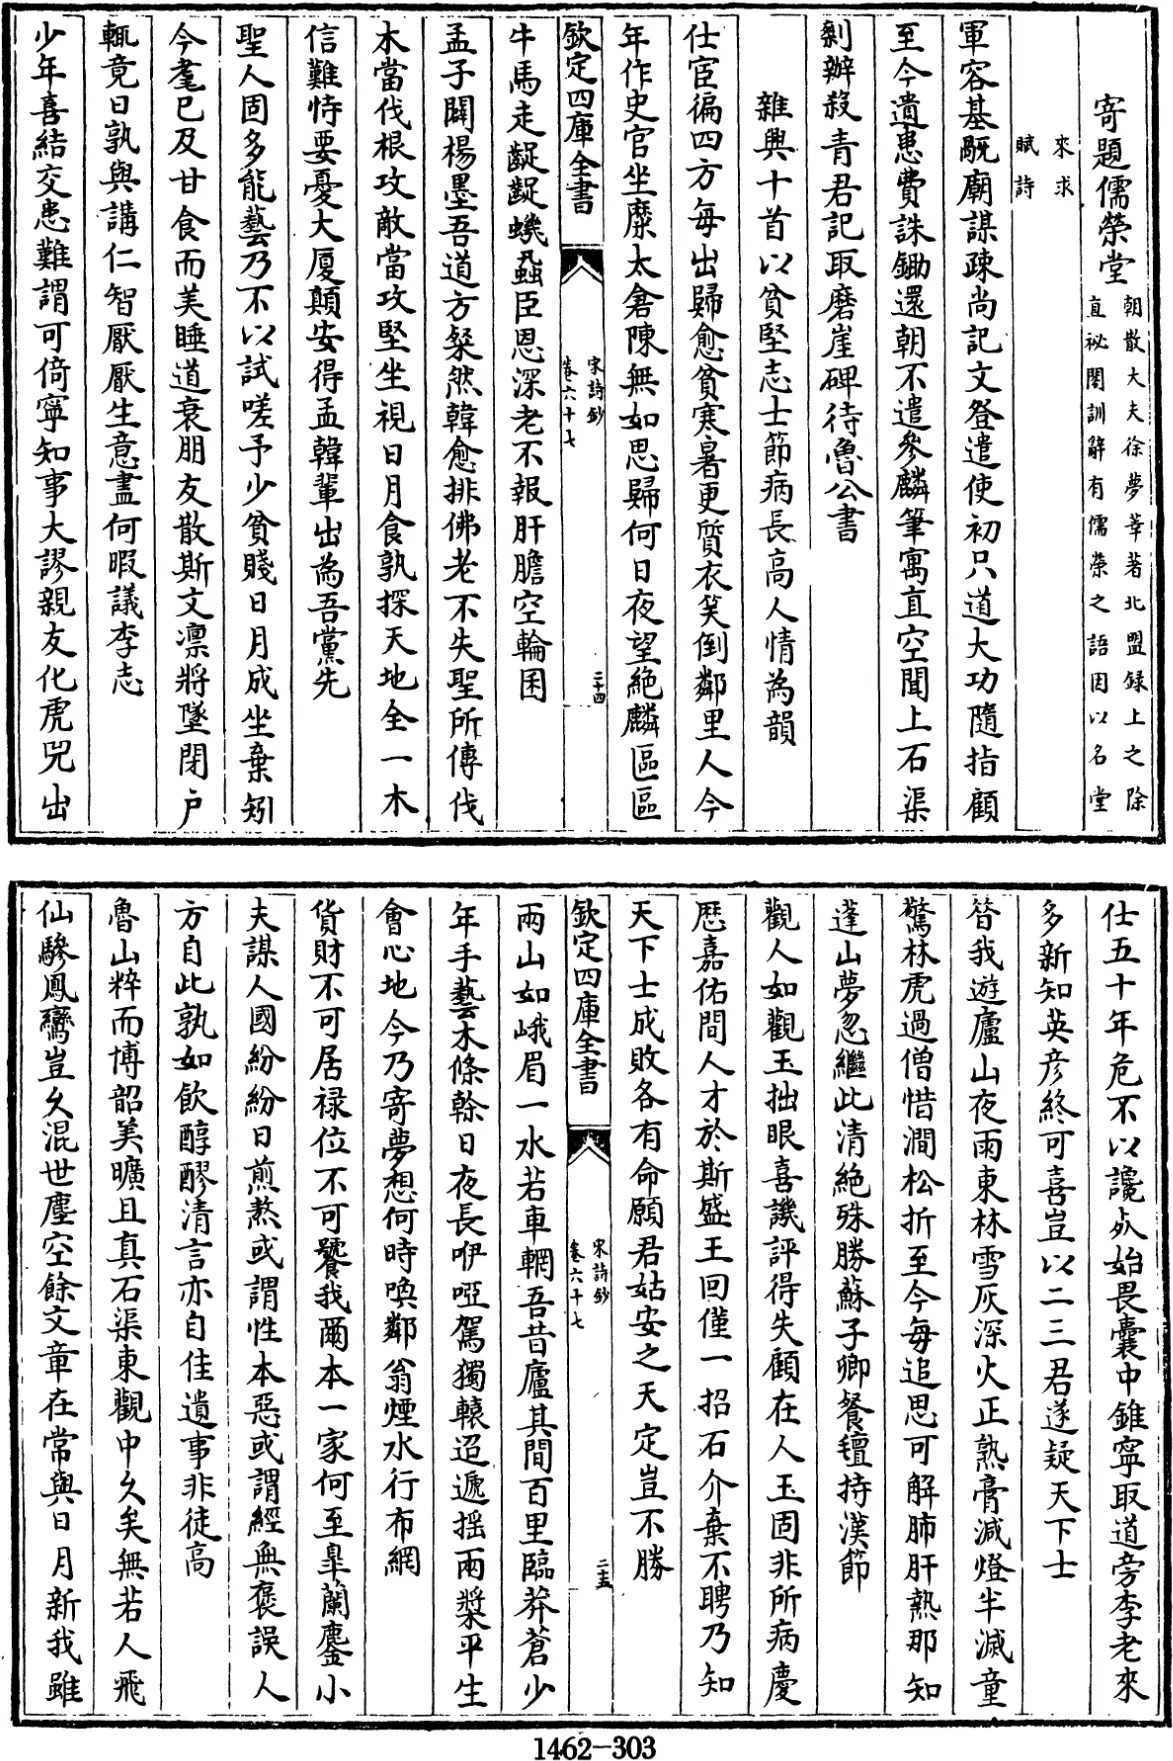 寄題儒榮堂朝散大夫徐夢莘著北盟録上之除直祕閣訓辭有儒榮之語因以名堂
來求賦詩
軍容基旤廟謀疎尚記文登遣使初只道大功隨指顧
至今遺患費誅鋤還朝不遣參麟筆寓直空聞上石渠
剩辦殺青君記取磨崖碑待魯公書
雜興十首以貧堅志士節病長高人情為韻
仕宦徧四方每出歸愈貧寒暑更質衣笑倒鄰里人今
年作史官坐糜太倉陳無如思歸何日夜望絶麟區區
欽定四庫全書
宋詩鈔
卷六十七
二十四
牛馬走齪齪蟣蝨臣恩深老不報肝膽空輪囷
孟子闢楊墨吾道方粲然韓愈排佛老不失聖所傳伐
木當伐根攻敵當攻堅坐視日月食孰探天地全一木
信難恃要憂大厦顛安得孟韓輩出為吾黨先
聖人固多能藝乃不以試嗟予少貧賤日月成坐棄矧
今耄已及甘食而美睡道衰朋友散斯文凛將墜閉户
輒竟日孰與講仁智厭厭生意盡何暇議李志
少年喜結交患難謂可倚寧知事大謬親友化虎兕出
仕五十年危不以讒死始畏囊中錐寧取道旁李老來
多新知英彦終可喜豈以二三君遂疑天下士
昔我遊廬山夜雨東林雪灰深火正熟膏減燈半滅童
驚林虎過僧惜澗松折至今每追思可解肺肝熱那知
蓬山夢忽繼此清絶殊勝蘇子卿餐氊持漢節
觀人如觀玉拙眼喜譏評得失顧在人玉固非所病慶
歴嘉佑間人才於斯盛王回僅一招石介棄不聘乃知
天下士成敗各有命願君姑安之天定豈不勝
欽定四庫全書
宋詩鈔
卷六十七
二十五
兩山如峨眉一水若車輞吾昔廬其間百里臨莽蒼少
年手藝木條榦日夜長咿啞駕獨轅迢遞揺兩槳平生
會心地今乃寄夢想何時喚鄰翁煙水行布網
貨財不可居禄位不可饕我爾本一家何至臯蘭鏖小
夫謀人國紛紛日煎熬或謂性本惡或謂經無褒誤人
方自此孰如飲醇醪清言亦自佳遺事非徒高
魯山粹而博韶美曠且真石渠東觀中久矣無若人飛
仙驂鳳鸞豈久混世塵空餘文章在常與日月新我雖
1462-303